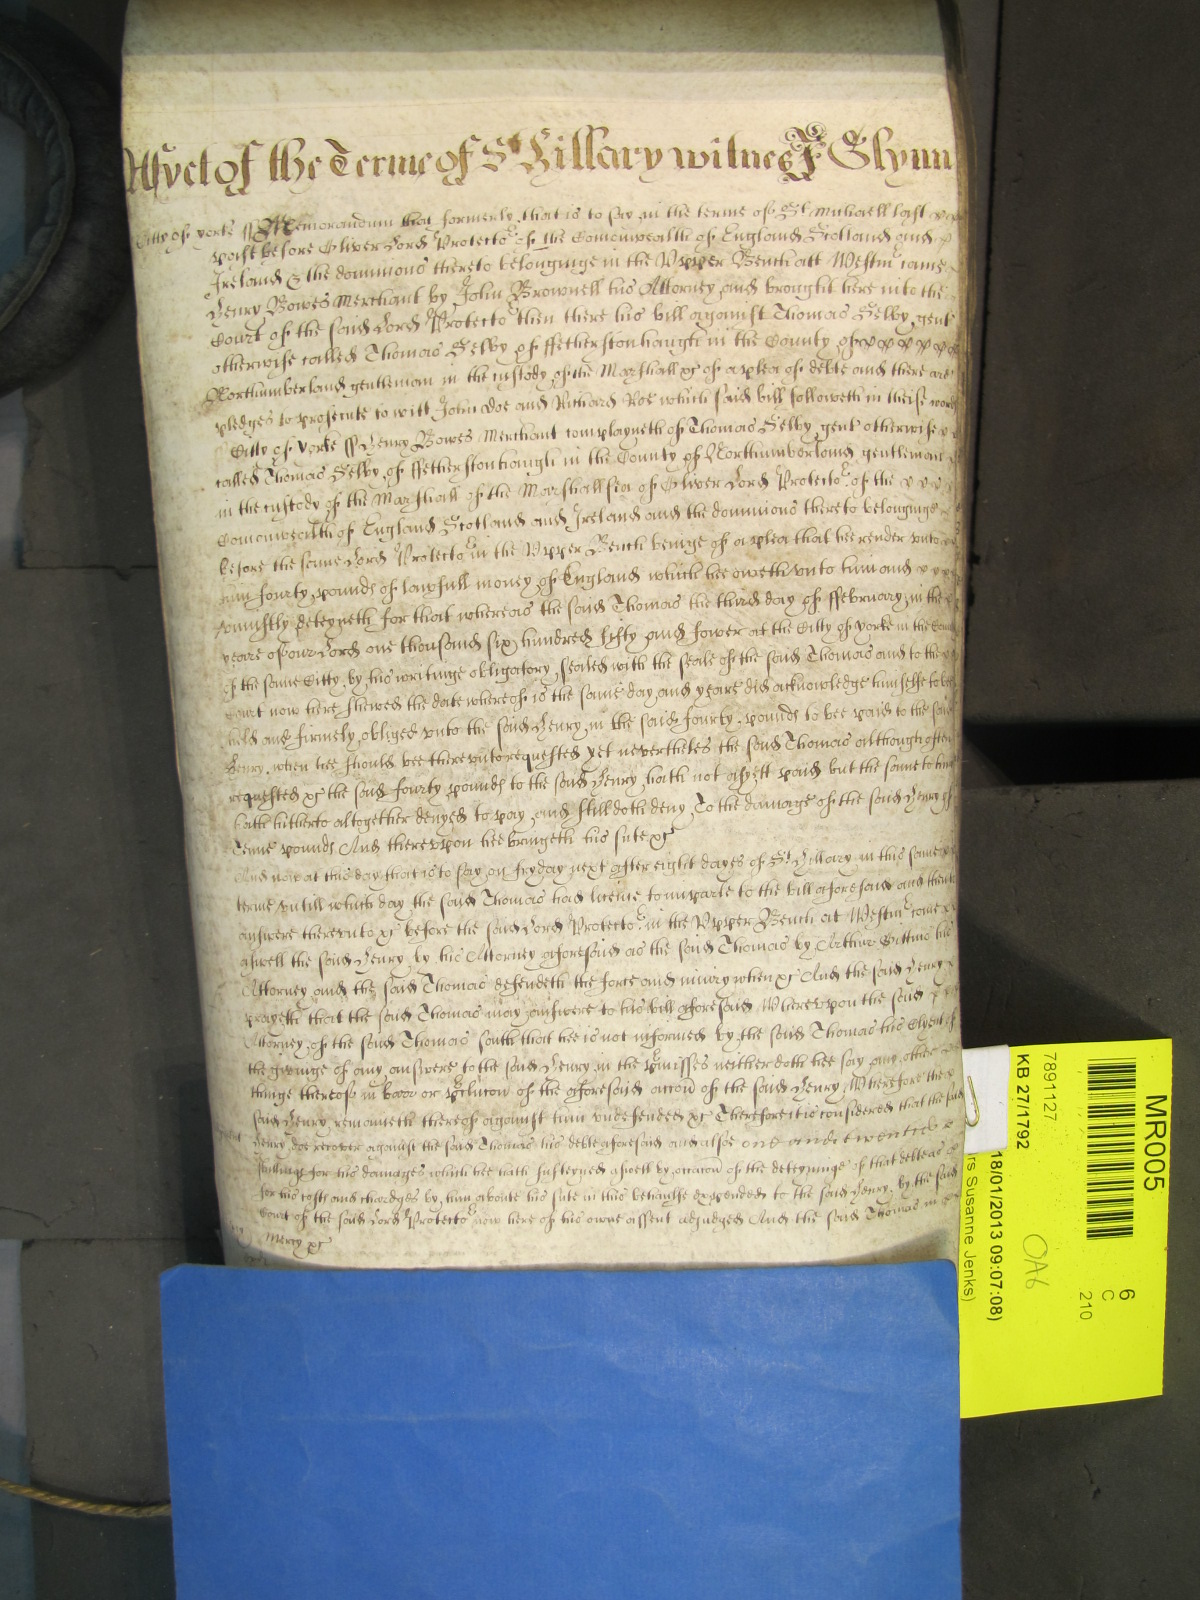 As yet of the Terme of St Hillary witnes J Glynn
Citty of yorke ss Memorandum that formerly that is to say in the terme of St Michaell last
past before Oliver Lord Protector of the Comonwealth of England Scotland and
Ireland & the dominions thereto belonginge in the Vpper Bench att Westmr came
Henry Bowes Merchant by John Brownell his Attorney and brought here into the
Court of the said Lord Protector then there his bill against Thomas Selby gent
otherwise called Thomas Selby of ffetherstonhaugh in the County of
Northumberland gentleman in the custody of the Marshall &c of a plea of debte and there are
pledges to prosecute to witt John Doe and Richard Roe which said bill followeth in theise words
Citty of Yorke ss Henry Bowes Merchant complayneth of Thomas Selby gent otherwise
called Thomas Selby of ffetherstonhaugh in the County of Northumberland gentleman
in the custody of the Marshall of the Marshallsea of Oliver Lord Protector of the
Comonwealth of England Scotland and Ireland and the dominions thereto belonginge
before the same Lord Protector in the Vpper Bench beinge of a plea that hee render vnto
him fourty pounds of lawfull money of England which hee oweth vnto him and
vniustly deteyneth for that whereas the said Thomas the third day of ffebruary in the
yeare of our Lord one thousand six hundred fifty and fower at the Citty of yorke in the County
of the same Citty by his writinge obligatory sealed with the seale of the said Thomas and to the
Court now here shewed the date whereof is the same day and yeare did acknowledge himselfe to bee
held and firmely obliged vnto the said Henry in the said fourty pounds to bee paid to the said
Henry when hee should bee therevnto requested yet nevertheles the said Thomas although often
requested &c the said fourty pounds to the said Henry hath not as yett paid but the same to him
hath hitherto altogether denyed to pay and still doth deny To the damage of the said Henry of
Tenne pounds And therevpon hee bringeth his sute &c
And now at this day that is to say on fryday next after eight dayes of St Hillary in this same
terme vntill which day the said Thomas had licence to imparle to the bill aforesaid and then to
answere therevnto &c before the said Lord Protector in the Vpper Bench at Westmr came
aswell the said Henry by his Attorney aforesaid as the said Thomas by Arthur Gittins his
Attorney and the said Thomas defendeth the force and iniury when &c And the said Henry
prayeth that the said Thomas may answere to his bill aforesaid Wherevpon the said
Attorney of the said Thomas saith that hee is not informed by the said Thomas his Clyent of
the giveinge of any answere to the said Henry in the p'misses neither doth hee say any other
thinge thereof in barr or p'clucon of the aforesaid accon of the said Henry Wherefore the
said Henry remaineth thereof against him vndefended &c Therefore it is considered that the said
Henry doe recover against the said Thomas his debte aforesaid and alsoe one and twentie
shillings for his damages which hee hath susteyned aswell by occacon of the deteyninge of that debte as
for his costs and chardges by him aboute his sute in this behalfe expended to the said Henry by the said
Court of the said Lord Protector now here of his owne assent adjudged And the said Thomas in
Mercy &c
MR005
6
C
210
7891127
KB 27/1792
18/01/2013 09:07:08)
rs Susanne Jenks)
OA6